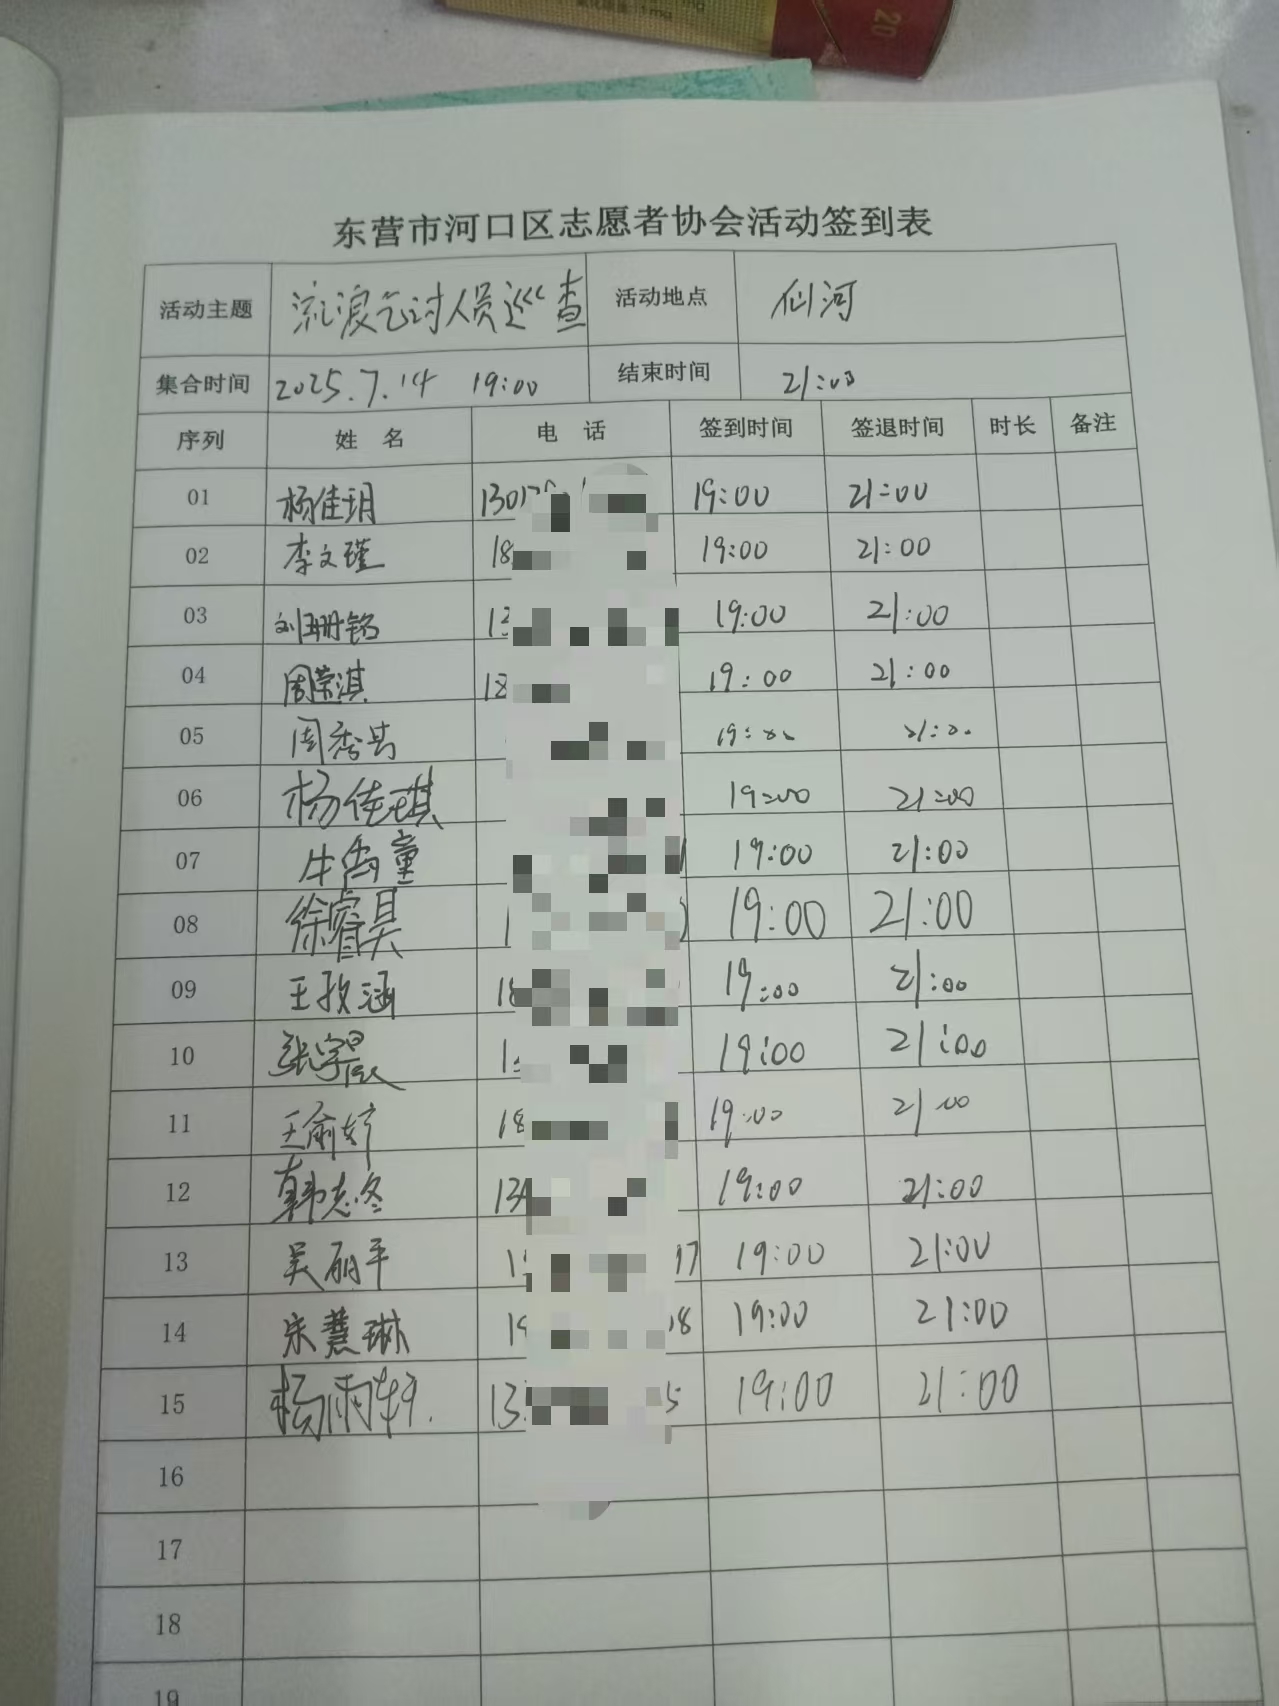 20
东营市河口区志愿者协会活动签到表
活动主题 流浪乞讨人员巡查 活动地点 仙河
集合时间 2025.7.14 19:00 结束时间 21:00
序列 姓 名 电 话 签到时间 签退时间 时长 备注
01 杨佳玥 130 19:00 21:00
02 李文瑾 18 19:00 21:00
03 刘珊铭 13 19:00 21:00
04 周荣淇 18 19:00 21:00
05 周秀英 19:00 21:00
06 杨佳琪 19:00 21:00
07 牛禹童 19:00 21:00
08 徐睿昊 1 19:00 21:00
09 王孜涵 18 19:00 21:00
10 张宇晨 1 19:00 21:00
11 王俞婷 18 19:00 21:00
12 韩志冬 13 19:00 21:00
13 吴丽平 1 17 19:00 21:00
14 宋慧琳 19 08 19:00 21:00
15 杨雨轩. 13 5 19:00 21:00
16
17
18
19